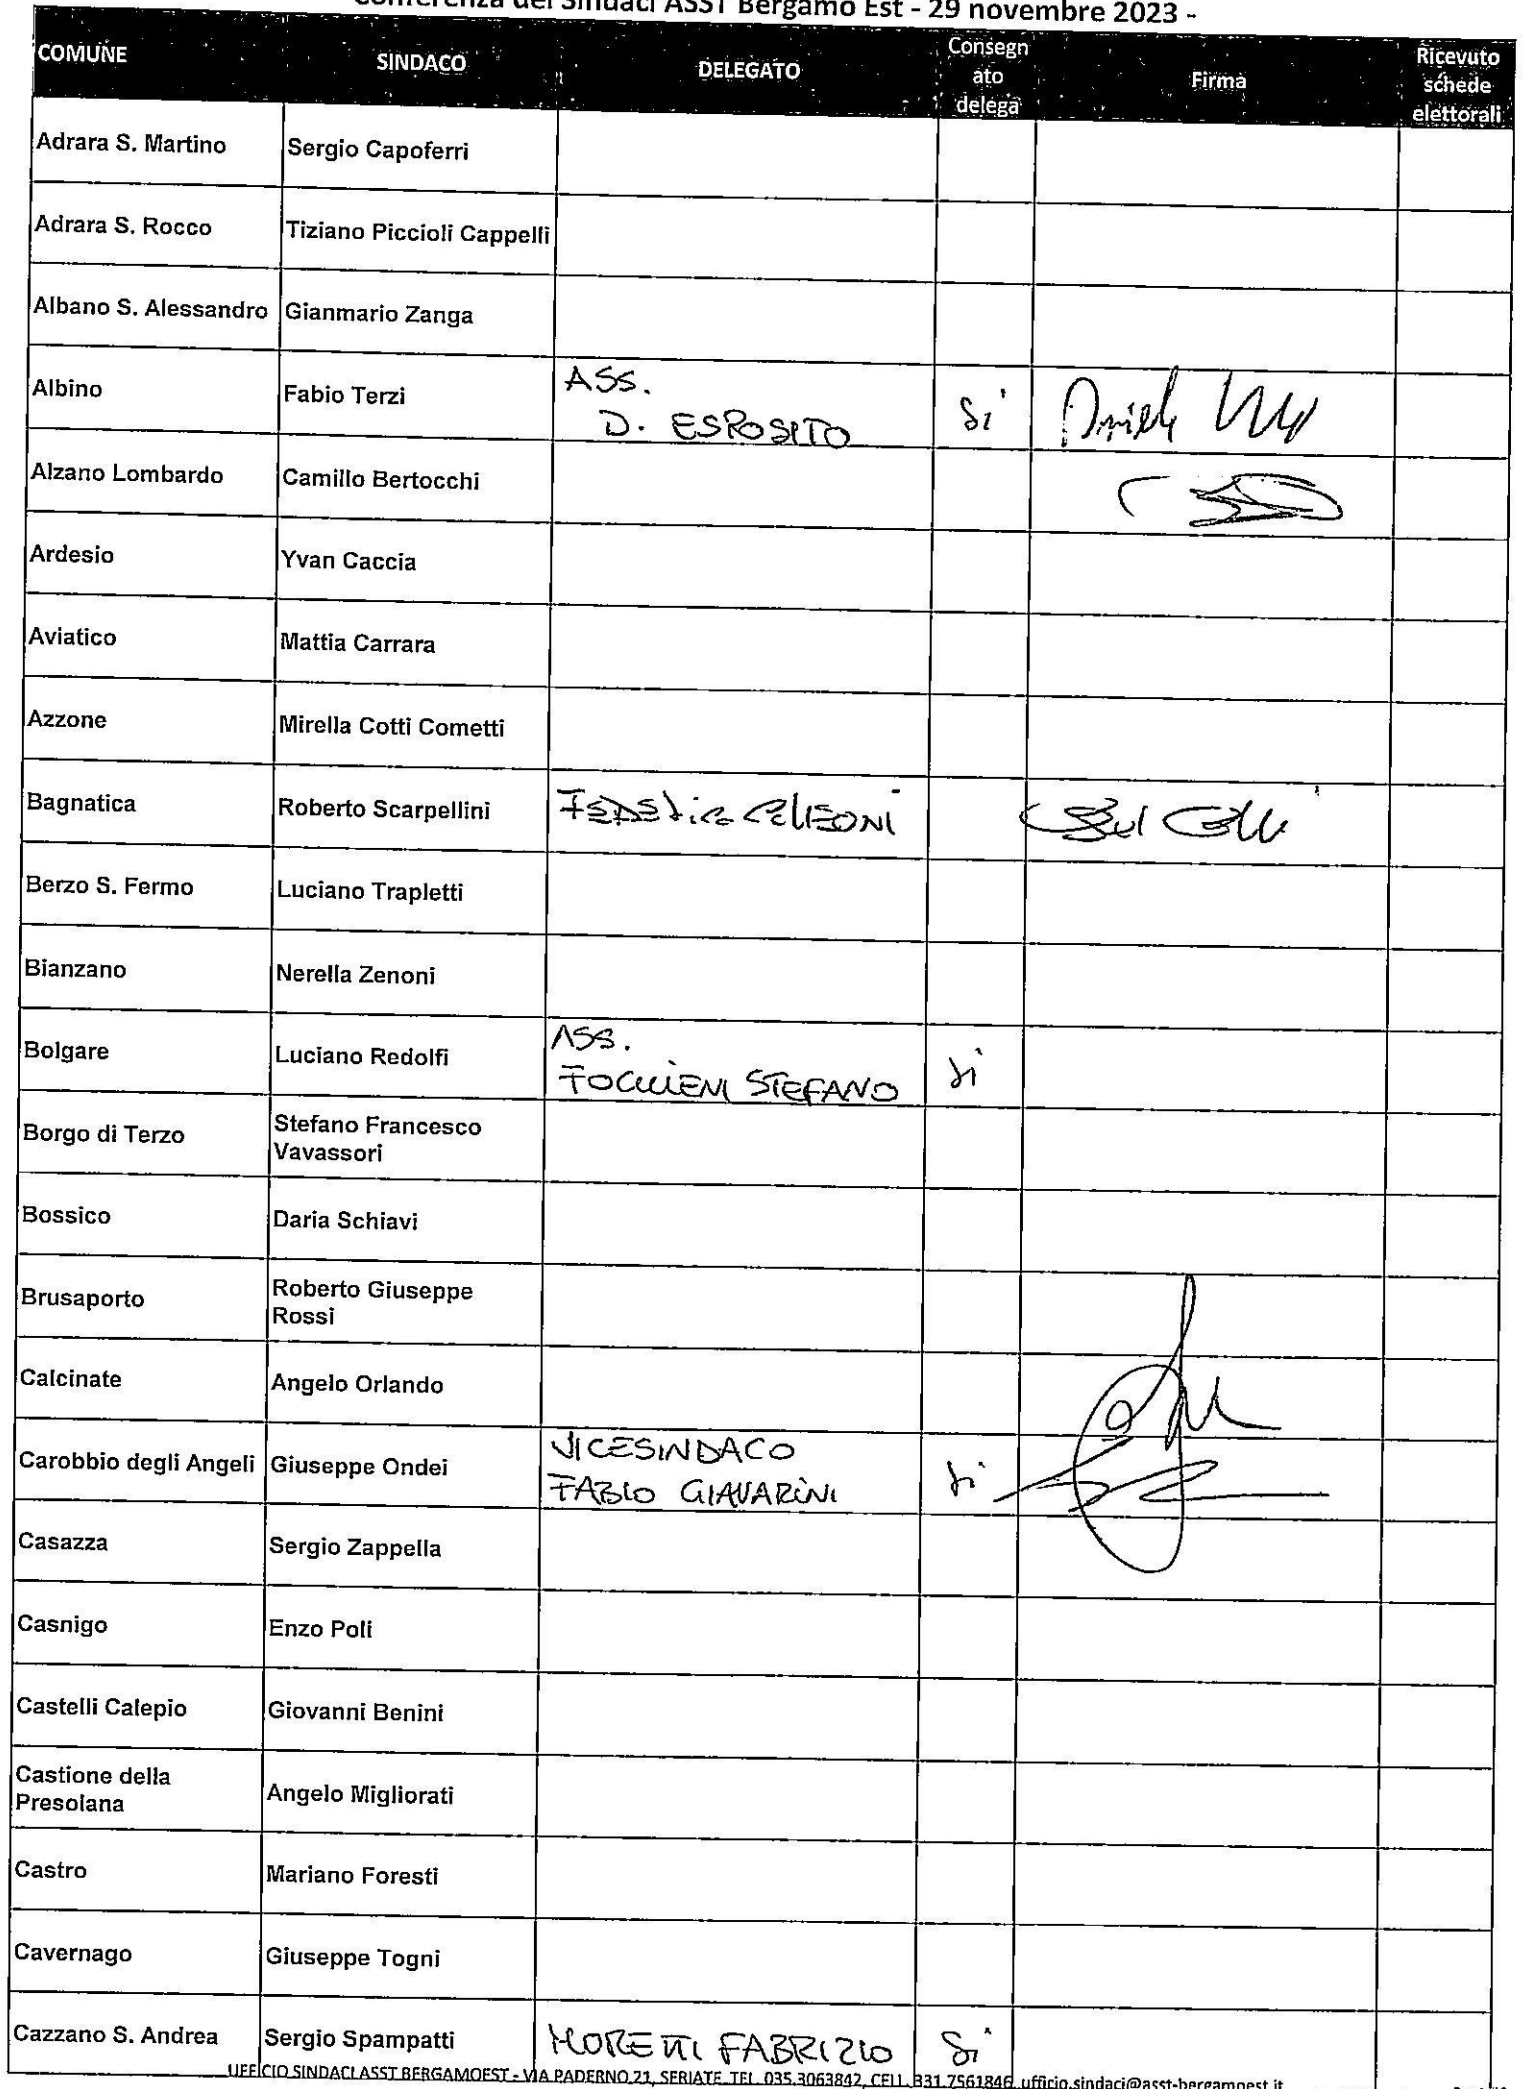 Conferenza dei Sindaci ASST Bergamo Est - 29 novembre 2023 -
COMUNE SINDACO DELEGATO Consegn ato delega Firma Ricevuto schede elettorali
Adrara S. Martino Sergio Capoferri
Adrara S. Rocco Tiziano Piccioli Cappelli
Albano S. Alessandro Gianmario Zanga
Albino Fabio Terzi ASS. D. ESPOSITO Sì
Alzano Lombardo Camillo Bertocchi
Ardesio Yvan Caccia
Aviatico Mattia Carrara
Azzone Mirella Cotti Cometti
Bagnatica Roberto Scarpellini
Berzo S. Fermo Luciano Trapletti
Bianzano Nerella Zenoni
Bolgare Luciano Redolfi ASS. STEFANO Sì
Borgo di Terzo Stefano Francesco Vavassori
Bossico Daria Schiavi
Brusaporto Roberto Giuseppe Rossi
Calcinate Angelo Orlando
Carobbio degli Angeli Giuseppe Ondei VICESINDACO FABIO GIAVARINI Sì
Casazza Sergio Zappella
Casnigo Enzo Poli
Castelli Calepio Giovanni Benini
Castione della Presolana Angelo Migliorati
Castro Mariano Foresti
Cavernago Giuseppe Togni
Cazzano S. Andrea Sergio Spampatti MORETTI FABRIZIO Sì
UFFICIO SINDACI ASST BERGAMOEST - VIA PADERNO 21, SERIATE TEL. 035.3063842, CELL. 331.7561846 ufficio.sindaci@asst-bergamoest.it